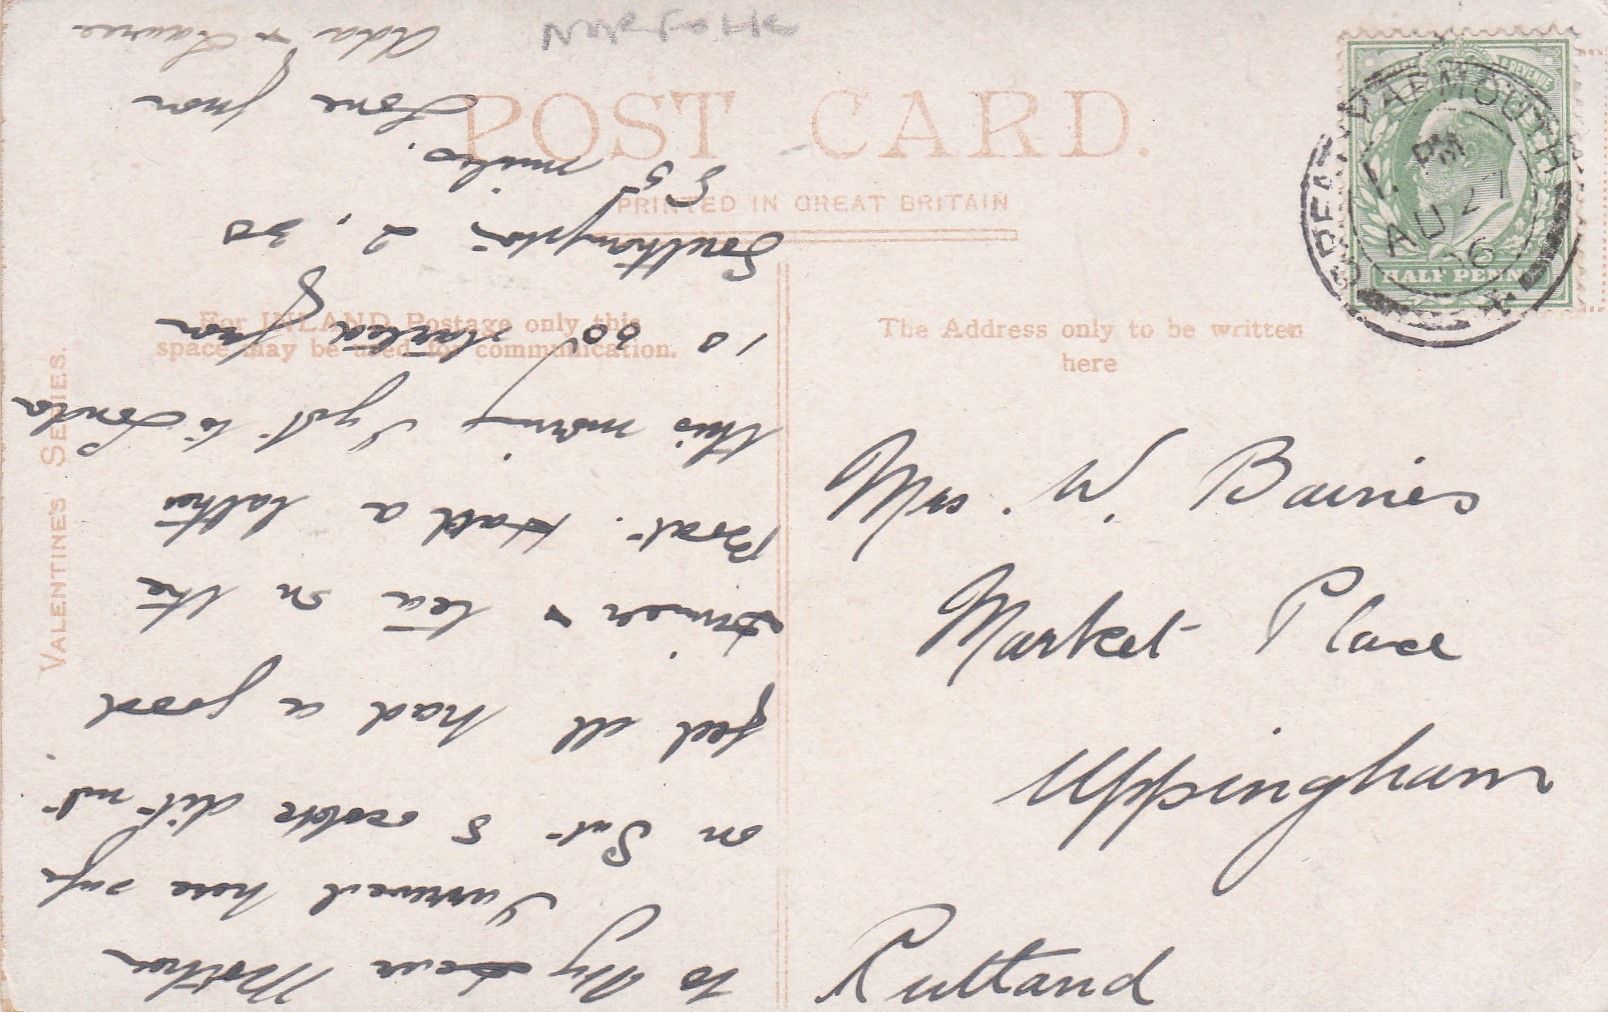 Norfolk
POST CARD.
PRINTED IN GREAT BRITAIN
For INLAND Postage only this
space may be used for communication.
The Address only to be written
here
VALENTINE'S SERIES.
GREAT YARMOUTH
PM
AU 27
06
POSTAGE & REVENUE
HALF PENNY
Mrs. W. Baines
Market Place
Uppingham
Rutland
To My Dear Mother
I arrived here safe
on Sat 5 oclock did not
feel ill had a good
dinner & tea on the
Boat. Had a bathe
this morning I got to London
10 00 started from
Southampton 2,30
85 miles.
Love from
Ada & Laurie